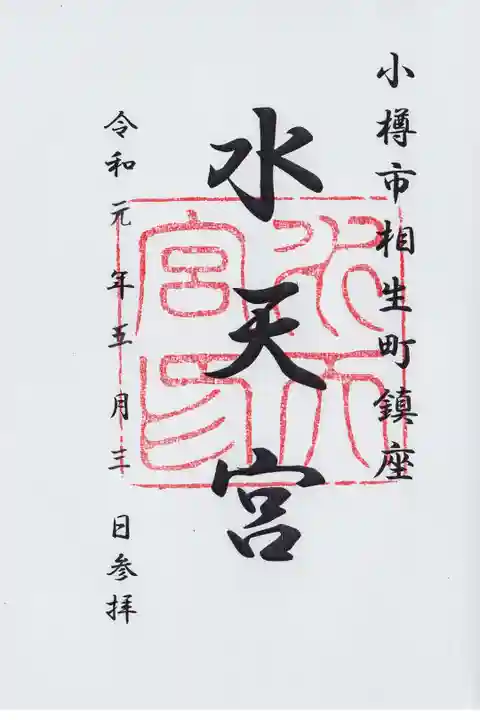 小樽市相生町鎮座
水天宮
水天宮印
令和元年五月三日参拝